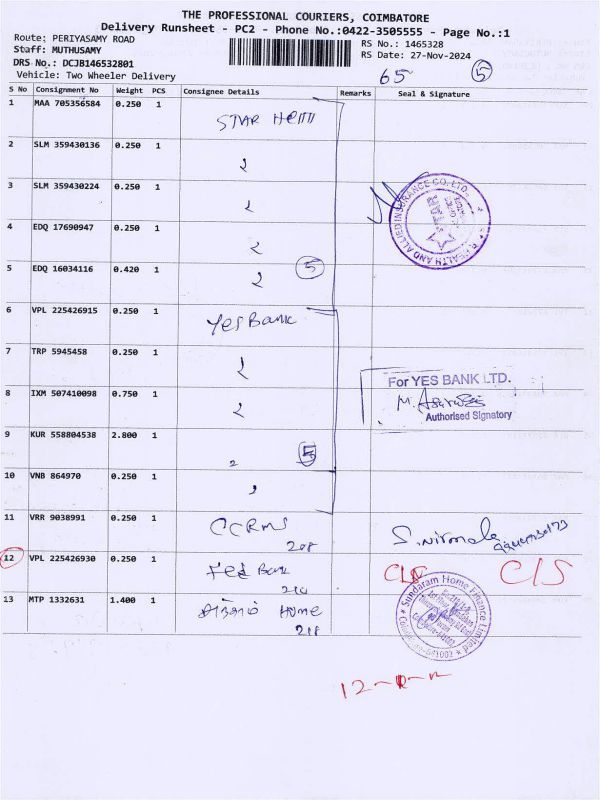 THE PROFESSIONAL COURIERS, COIMBATORE
Delivery Runsheet - PC2 - Phone No.:0422-3505555 - Page No.:1
Route: PERIYASAMY ROAD
RS No.: 1465328
Staff: MUTHUSAMY
RS Date: 27-Nov-2024
DRS No.: DCJB146532801
Vehicle: Two Wheeler Delivery
65 5
S No Consignment No Weight PCS Consignee Details Remarks Seal & Signature
1 MAA 705356584 0.250 1 STAR
2 SLM 359430136 0.250 1
3 SLM 359430224 0.250 1
4 EDQ 17690947 0.250 1
5 EDQ 16034116 0.420 1 5
6 VPL 225426915 0.250 1 Yes Bank
7 TRP 5945458 0.250 1
8 IXM 507410098 0.750 1
For YES BANK LTD.
Authorised Signatory
9 KUR 558804538 2.800 1 5
10 VNB 864970 0.250 1
11 VRR 9038991 0.250 1 CCRMS S. Nirmala
208
12 VPL 225426930 0.250 1 Fed Bank C/S
210
13 MTP 1332631 1.400 1 சுந்தரம் Home
218
Sundaram Home Finance Limited